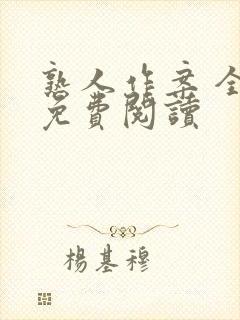 熟人作案全
免費閱讀
楊基穆